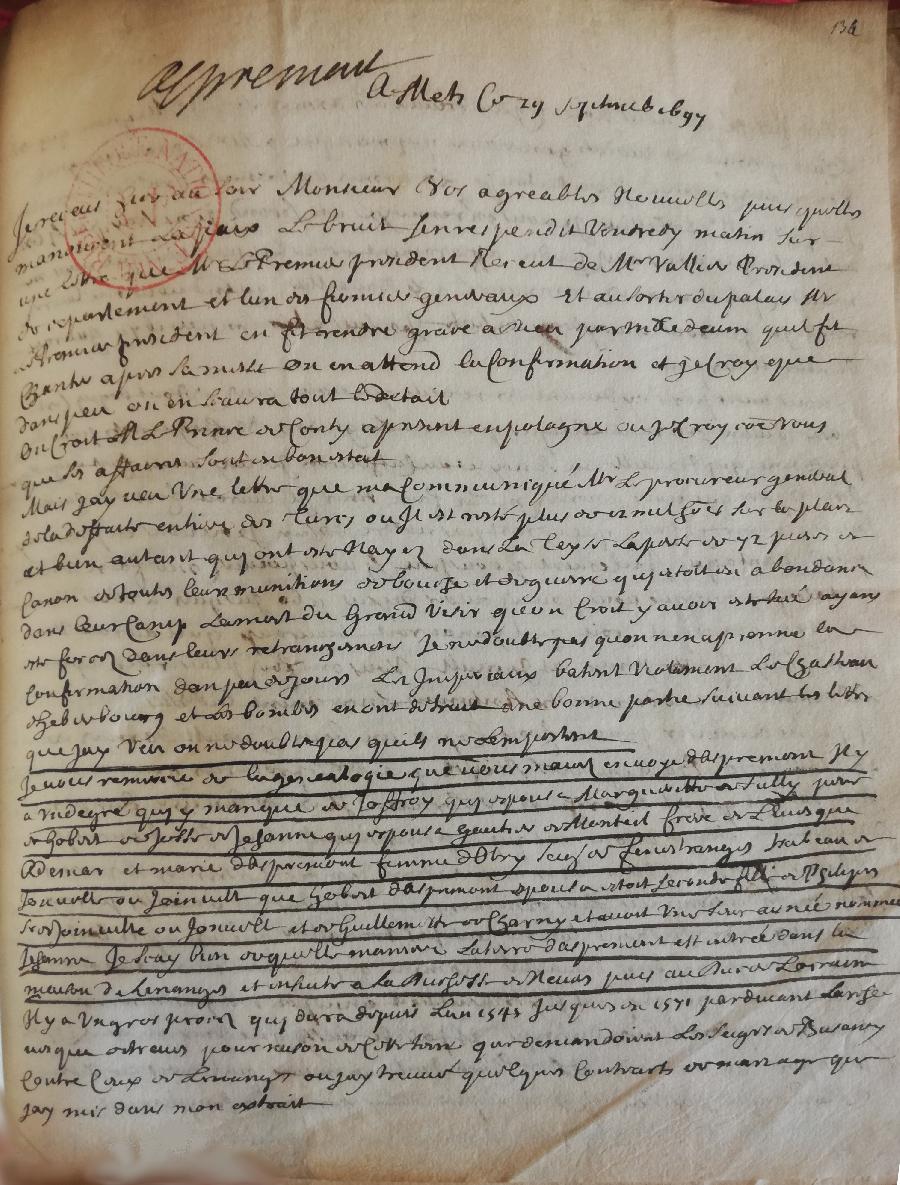 134
Aspremont
A Mets Ce 29 septembre 1697
Je receus hier au soir Monsieur Vos agreables Nouvelles puis quelles
mannoncent La paix Le bruit sen respendit Vendredy matin sur
une lettre que Mr Le Premier president Receut de Mr Vallier President
de departement et lun des fermiers generaux Et au sortir du palais Mr
le Premier president en fit rendre grace a dieu par un te deum quil fit
Chanter apres la messe On en attend la Confirmation et je Croy que
dans peu on en scaura tout le detail
On Croit Mr Le Prince de Conty a present en pologne ou je Croy coe vous
que ses affaires sont en bon estat
Mais jay veu Une lettre que ma Communiqué Mr Le procureur general
de la deffaite entiere des Turcs ou Il est resté plus de mil hoes sur la place
et bien autant qui ont esté Nayez dans La Teysse La perte de 72 pieces de
Canon de toutes leurs munitions de bouche et de guerre qui estoit en abondance
dans leur Camp La mort du Grand Visir qu'on Croit y avoir esté tué ayans
esté forcez dans leurs retranchemens Je ne doubte pas quon nen aprenne la
Confirmation dans peu de jours Les Imperiaux batent Vivement Le Chasteau
d'hebersbourg et les bombes en ont detruit une bonne partie suivant les lettres
que jay Veu on ne doubte pas quils ne Lemportent
Je vous remercie de la genealogie que vous mavez envoyé d'aspremont Il y
a un degré qui y manque de Joffroy qui espousa Marguerite de Sully pere
de Gobert de Josse de Jehanne qui espousa Gautier de Monteil frere de L'Evesque
Ademar et marie d'aspremont femme d'Obry Seigr de fenestranges Isabeau de
Jonville ou Joinville que Gobert d'aspremont espousa estoit seconde fille de Philipes
Sr de Joinville ou Jonville et de Guillemette de Charny et avoit Une soeur ainée nommée
Jehanne Je scay bien de quelle maniere La terre daspremont est entrée dans la
maison de Linanges et ensuite a La Duchesse de puis au Duc de Lorraine
Il y a Un gros procez qui dura depuis Lan 1543 jusques en 1571 pardevant
pour raison de Cette terre que demandoient Les Seigrs de Busancy
Contre Ceux de Linange ou jay treuvé quelques Contracts de mariage que
jay mis dans mon extrait